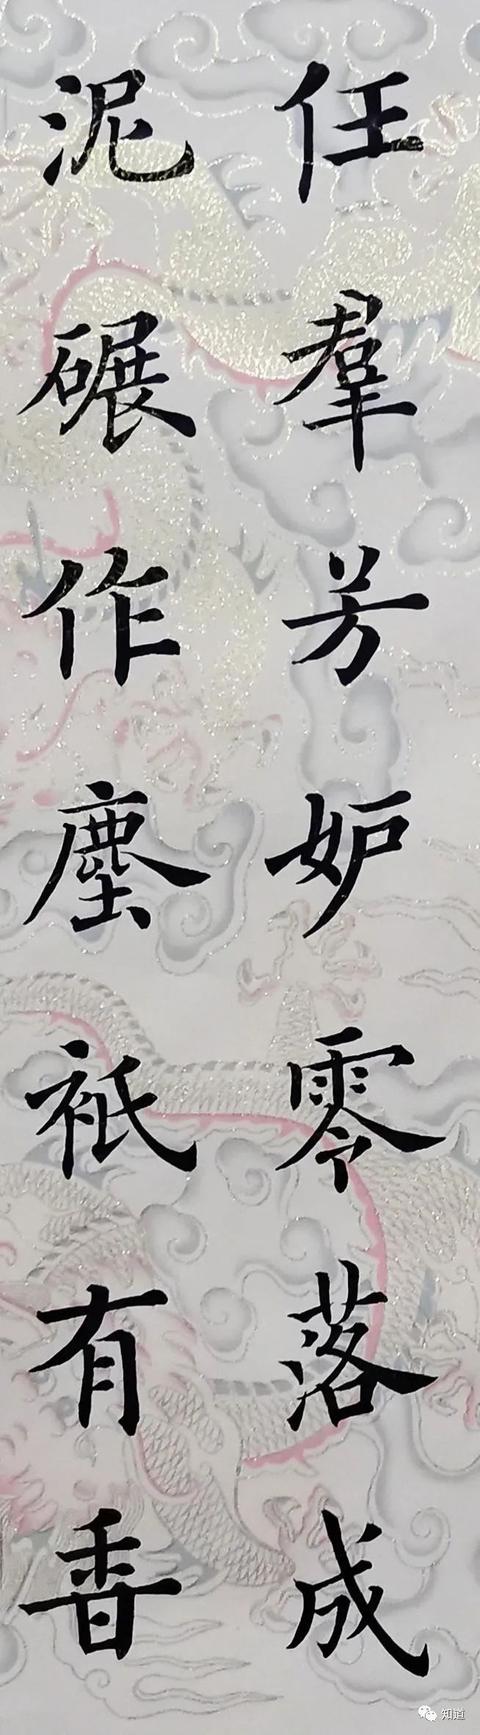 任羣芳妒零落成
泥碾作塵祇有香
知道